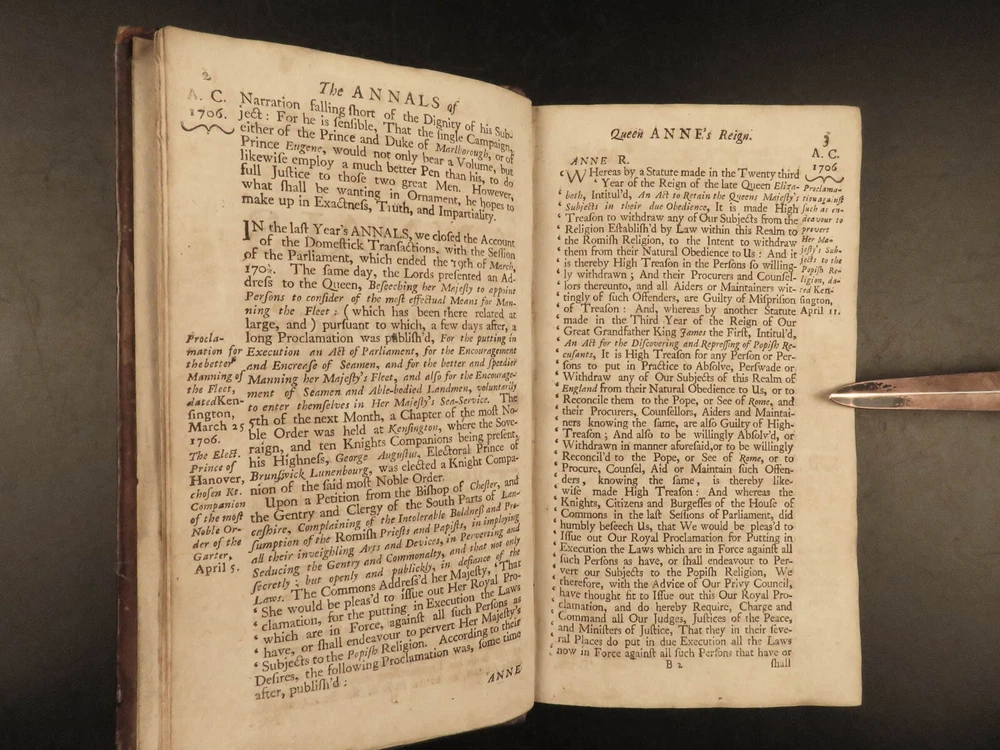 2
The ANNALS of
A. C.
1706.
Narration falling ſhort of the Dignity of his Sub-
ject: For he is ſenſible, That the ſingle Campaign,
either of the Prince and Duke of Marlborough, or of
Prince Eugene, would not only bear a Volume, but
likewiſe employ a much better Pen than his, to do
full Juſtice to thoſe two great Men. However,
what ſhall be wanting in Ornament, he hopes to
make up in Exactneſs, Truth, and Impartiality.
IN the laſt Year's ANNALS, we cloſed the Account
of the Domeſtick Tranſactions, with the Seſſion
of the Parliament, which ended the 19th of March,
170⅚. The ſame day, the Lords preſented an Ad-
dreſs to the Queen, Beſeeching her Majeſty to appoint
Perſons to conſider of the moſt effectual Means for Man-
ning the Fleet; (which has been there related at
large, and) purſuant to which, a few days after, a
long Proclamation was publiſh'd, For the putting in
Execution an Act of Parliament, for the Encouragement
and Encreaſe of Seamen, and for the better and ſpeedier
Manning her Majeſty's Fleet, and alſo for the Encourage-
ment of Seamen and Able-bodied Landmen, voluntarily
to enter themſelves in Her Majeſty's Sea-Service. The
5th of the next Month, a Chapter of the moſt No-
ble Order was held at Kenſington, where the Sove-
raign, and ten Knights Companions being preſent,
his Highneſs, George Auguſtus, Electoral Prince of
Brunſwick Lunenbourg, was elected a Knight Compa-
nion of the ſaid moſt Noble Order.
Upon a Petition from the Biſhop of Cheſter, and
the Gentry and Clergy of the South Parts of Lan-
caſhire, Complaining of the Intolerable Boldneſs and Pre-
ſumption of the Romiſh Prieſts and Papiſts, in imploying
all their inveighling Arts and Devices, in Perverting and
Seducing the Gentry and Commonalty, and that not only
ſecretly; but openly and publickly, in defiance of the
Laws. The Commons Addreſs'd her Majeſty, ‘That
‘ She would be pleas'd to iſſue out Her Royal Pro-
‘ clamation, for the putting in Execution the Laws
‘ which are in Force, againſt all ſuch Perſons as
‘ have, or ſhall endeavour to pervert Her Majeſty's
‘ Subjects to the Popiſh Religion. According to their
Deſires, the following Proclamation was, ſome time
after, publiſh'd:
ANNE
Procla-
mation for
the better
Manning of
the Fleet,
dated Ken-
ſington,
March 25
1706.
The Elect.
Prince of
Hanover,
choſen Kt.
Companion
of the moſt
Noble Or-
der of the
Garter,
April 5.
Queen ANNE's Reign.
3
A. C.
1706
ANNE R.
‘ WHereas by a Statute made in the Twenty third
‘ Year of the Reign of the late Queen Eliza-
‘ beth, Intitul'd, An Act to Retain the Queens Majeſty's
‘ Subjects in their due Obedience, It is made High
‘ Treaſon to withdraw any of Our Subjects from the
‘ Religion Eſtabliſh'd by Law within this Realm to
‘ the Romiſh Religion, to the Intent to withdraw
‘ them from their Natural Obedience to Us: And it
‘ is thereby High Treaſon in the Perſons ſo willing-
‘ ly withdrawn; And their Procurers and Counſel-
‘ lors thereunto, and all Aiders or Maintainers wit-
‘ tingly of ſuch Offenders, are Guilty of Miſpriſion
‘ of Treaſon: And, whereas by another Statute
‘ made in the Third Year of the Reign of Our
‘ Great Grandfather King James the Firſt, Intitul'd,
‘ An Act for the Diſcovering and Repreſſing of Popiſh Re-
‘ cuſants, It is High Treaſon for any Perſon or Per-
‘ ſons to put in Practice to Abſolve, Perſwade or
‘ Withdraw any of Our Subjects of this Realm of
‘ England from their Natural Obedience to Us, or to
‘ Reconcile them to the Pope, or See of Rome, and
‘ their Procurers, Counſellors, Aiders and Maintai-
‘ ners knowing the ſame, are alſo Guilty of High-
‘ Treaſon; And alſo to be willingly Abſolv'd, or
‘ Withdrawn in manner aforeſaid, or to be willingly
‘ Reconcil'd to the Pope, or See of Rome, or to
‘ Procure, Counſel, Aid or Maintain ſuch Offen-
‘ ders, knowing the ſame, is thereby like-
‘ wiſe made High Treaſon: And whereas the
‘ Knights, Citizens and Burgeſſes of the Houſe of
‘ Commons in the laſt Seſſions of Parliament, did
‘ humbly beſeech Us, that We would be pleas'd to
‘ Iſſue out Our Royal Proclamation for Putting in
‘ Execution the Laws which are in Force againſt all
‘ ſuch Perſons as have, or ſhall endeavour to Per-
‘ vert our Subjects to the Popiſh Religion, We
‘ therefore, with the Advice of Our Privy Council,
‘ have thought fit to Iſſue out this Our Royal Pro-
‘ clamation, and do hereby Require, Charge and
‘ Command all Our Judges, Juſtices of the Peace,
‘ and Miniſters of Juſtice, That they in their ſeve-
‘ ral Places do put in due Execution all the Laws
‘ now in Force againſt all ſuch Perſons that have or
B 2
ſhall
Proclama-
tion againſt
ſuch as en-
deavour to
pervert
Her Ma-
jeſty's Sub-
jects to the
Popiſh Re-
ligion, da-
ted Ken-
ſington,
April 11.